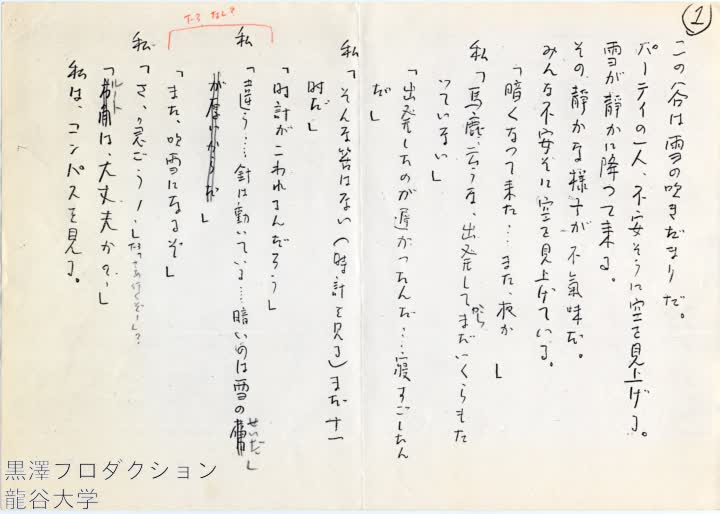 1
この谷は雪の吹きだまりだ。
パーティの一人、不安そうに空を見上げる。
雪が静かに降つて来る。
その静かな様子が不氣味だ。
みんな不安そに空を見上げている。
「暗くなつて来た…また、夜か」
私「馬鹿云うな、出発してからまだいくらもた
つていない」
「出発したのが遅かつたんだ……寝すごしたん
だ」
私「そんな筈はない(時計を見る)まだ十一
時だ」
「時計がこわれてんだろう」
私「違う……針は動いている……暗いのは雪のせいだ」
「また、吹雪になるぞ」
私「さ、急ごう!」
「ルートは、大丈夫か?」
私は、コンパスを見る。
黒澤プロダクション
龍谷大学